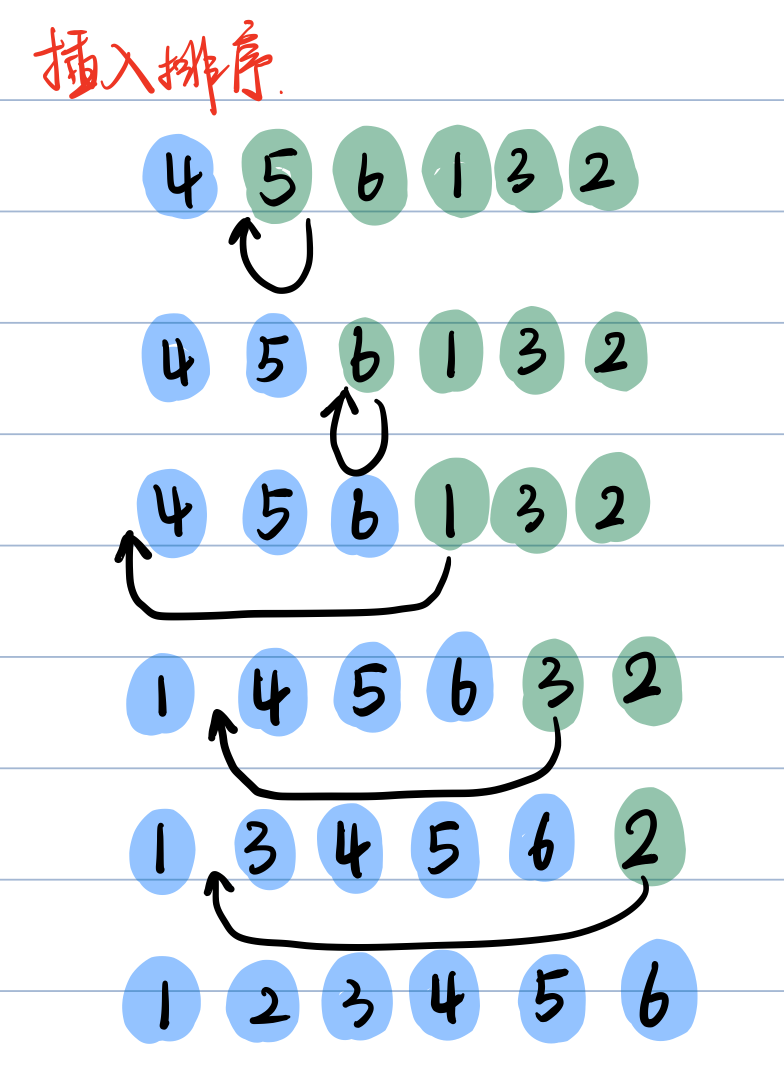 插入排序.
4 5 6 1 3 2
4 5 6 1 3 2
4 5 6 1 3 2
1 4 5 6 3 2
1 3 4 5 6 2
1 2 3 4 5 6